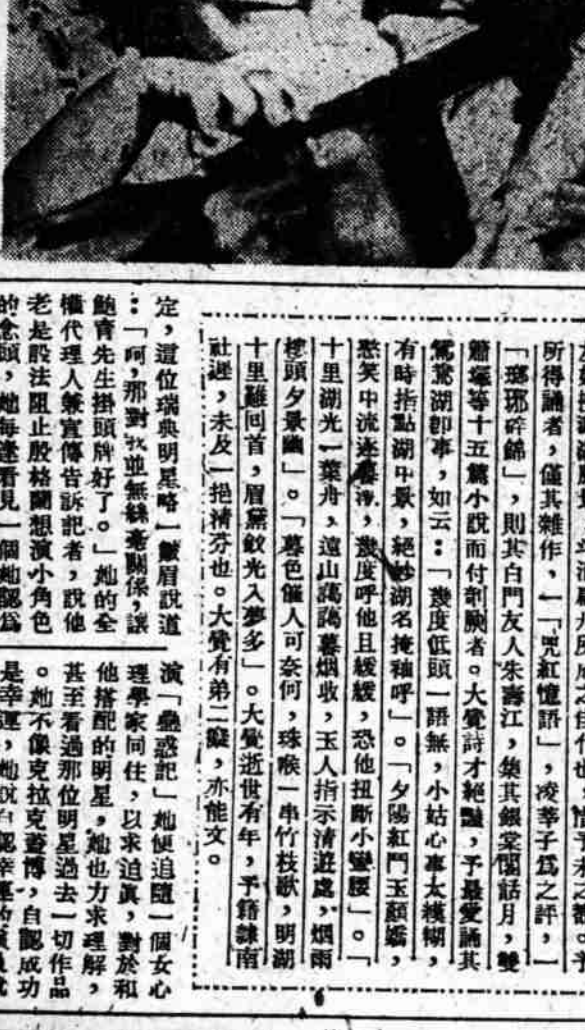 所得誦者，僅其雜作，一「咒紅憶語」，凌莘子爲之評，一
「瑯琊碎錦」，則其白門友人朱壽江，集其銀棠閣話月，雙
簫塚等十五篇小說而付剞劂者。大覺詩才絕豔，予最愛誦其
鴛鴦湖卽事，如云：「幾度低頭一語無，小姑心事太模糊，
有時指點湖中景，絕妙湖名掩袖呼」。「夕陽紅鬥玉顏嬌，
愁笑中流逐暮，幾度呼他且緩緩，恐他扭斷小蠻腰」。「
十里湖光一葉舟，遠山藹藹暮烟收，玉人指示淸遊處，烟雨
樓頭夕景幽」。「暮色催人可奈何，珠喉一串竹枝歌，明湖
十里難回首，眉黛鈫光入夢多」。大覺逝世有年，予籍隷南
社逕，未及一挹淸芬也。大覺有弟二癡，亦能文。
6
定，這位瑞典明星略一皺眉說道
：「呵，那對我並無絲毫關係，讓
鮑育先生掛頭牌好了。」她的全
權代理人兼宣傳告訴記者，說他
老是設法阻止殷格蘭想演小角色
的念頭，她每逢看見一個她認爲
演「蠱惑記」她便追隨一個女心
理學家同住，以求迫眞，對於和
他搭配的明星，她也力求理解，
甚至看過那位明星過去一切作品
。她不像克拉克蓋博，自認成功
是幸運，她說自認幸運的演員